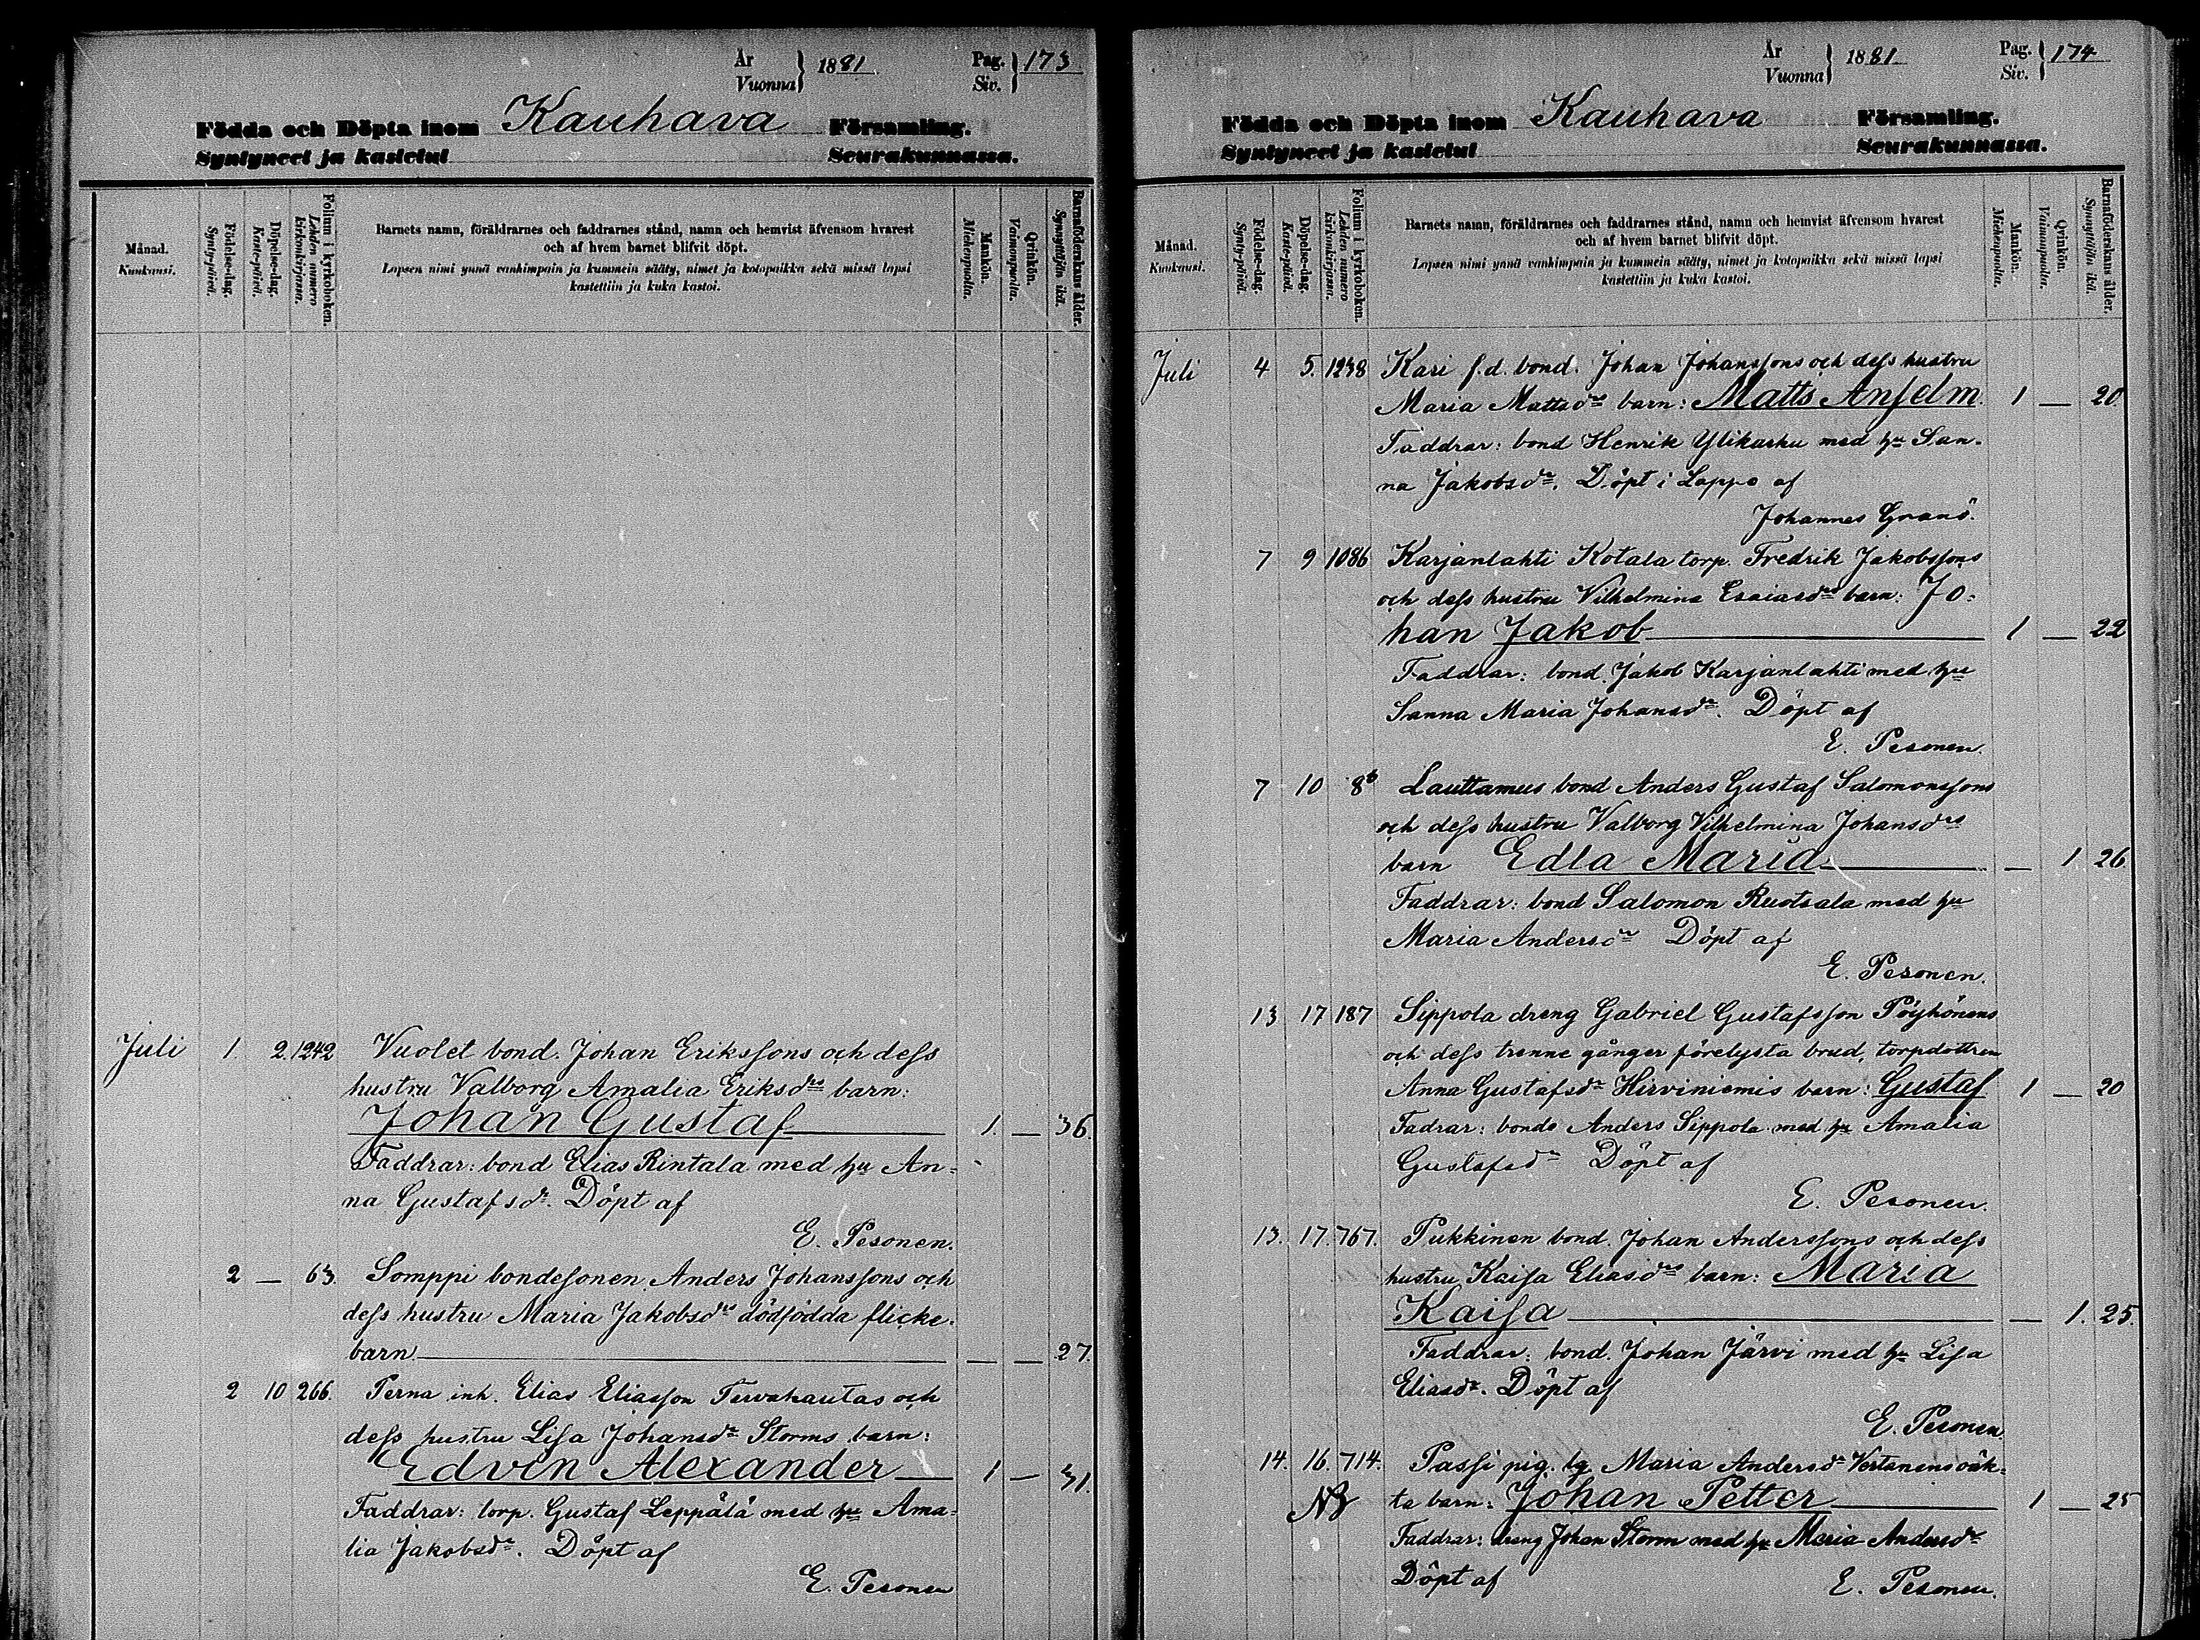 År
Vuonna } 1881
Pag.
Siv. } 173
Födda och Döpta inom Kauhava Församling.
Syntyneet ja kastetut Seurakunnassa.
Månad.
Kuukausi.
Födelse-dag.
Synty-päivä.
Döpelse-dag.
Kaste-päivä.
Folium i kyrkoboken.
Lehden numero kirkonkirjassa.
Barnets namn, föräldrarnes och faddrarnes stånd, namn och hemvist äfvensom hvarest
och af hvem barnet blifvit döpt.
Lapsen nimi ynnä vanhimpain ja kummein sääty, nimet ja kotopaikka sekä missä lapsi
kastettiin ja kuka kastoi.
Mankön.
Miehenpuolia.
Qvinkön.
Vaimonpuolia.
Barnaföderskans ålder.
Synnyttäjän ikä.
Juli 1. 2. 1242 Vuolet bond. Johan Erikssons och dess
hustru Valborg Amalia Eriksdrs barn:
Johan Gustaf 1 — 36.
Faddrar: bond Elias Rintala med hu An-
na Gustafsdr. Döpt af
E. Pesonen.
2 — 63. Somppi bondesonen Anders Johanssons och
dess hustru Maria Jakobsdrs dödfödda flicke-
barn. — — 27.
2 10 266. Perna inh. Elias Eliasson Tervahautas och
dess hustru Lisa Johansdr Storms barn:
Edvin Alexander 1 — 31.
Faddrar: torp. Gustaf Leppälä med hu Ama-
lia Jakobsdr. Döpt af
E. Pesonen
År
Vuonna } 1881.
Pag.
Siv. } 174
Födda och Döpta inom Kauhava Församling.
Syntyneet ja kastetut Seurakunnassa.
Månad.
Kuukausi.
Födelse-dag.
Synty-päivä.
Döpelse-dag.
Kaste-päivä.
Folium i kyrkoboken.
Lehden numero kirkonkirjassa.
Barnets namn, föräldrarnes och faddrarnes stånd, namn och hemvist äfvensom hvarest
och af hvem barnet blifvit döpt.
Lapsen nimi ynnä vanhimpain ja kummein sääty, nimet ja kotopaikka sekä missä lapsi
kastettiin ja kuka kastoi.
Mankön.
Miehenpuolia.
Qvinkön.
Vaimonpuolia.
Barnaföderskans ålder.
Synnyttäjän ikä.
Juli 4 5. 1238 Kari f.d. bond. Johan Johanssons och dess hustru
Maria Mattsdrs barn: Matts Anselm. 1 — 20.
Faddrar: bond Henrik Ylikarhu med hu San-
na Jakobsdr. Döpt i Lappo af
Johannes Granö.
7 9 1086 Karjanlahti Kotala torp. Fredrik Jakobssons
och dess hustru Vilhelmina Esaiasdrs barn: Jo-
han Jakob 1 — 22
Faddrar: bond. Jakob Karjanlahti med hu
Sanna Maria Johansdr. Döpt af
E. Pesonen.
7 10 8b Lauttamus bond Anders Gustaf Salomonssons
och dess hustru Valborg Vilhelmina Johansdrs
barn Edla Maria — 1 26
Faddrar: bond Salomon Ruotsala med hu
Maria Andersdr Döpt af
E. Pesonen.
13 17 187 Sippola dreng Gabriel Gustafsson Pöyhönens
och dess trenne gånger förelysta brud, torpdottren
Anna Gustafsdr Hirviniemis barn: Gustaf 1 — 20
Fadrar: bonde Anders Sippola med hu Amalia
Gustafsdr Döpt af
E. Pesonen.
13. 17. 767. Pukkinen bond. Johan Anderssons och dess
hustru Kaisa Eliasdrs barn: Maria
Kaisa — 1. 25.
Faddrar: bond. Johan Järvi med hu Lisa
Eliasdr. Döpt af
E. Pesonen
14. 16. 714. Passi pig. lg. Maria Andersdr Vertanens oäk-
NB ta barn: Johan Petter 1 — 25
Faddrar: dreng Johan Storm med hu Maria Andersdr
Döpt af E. Pesonen.